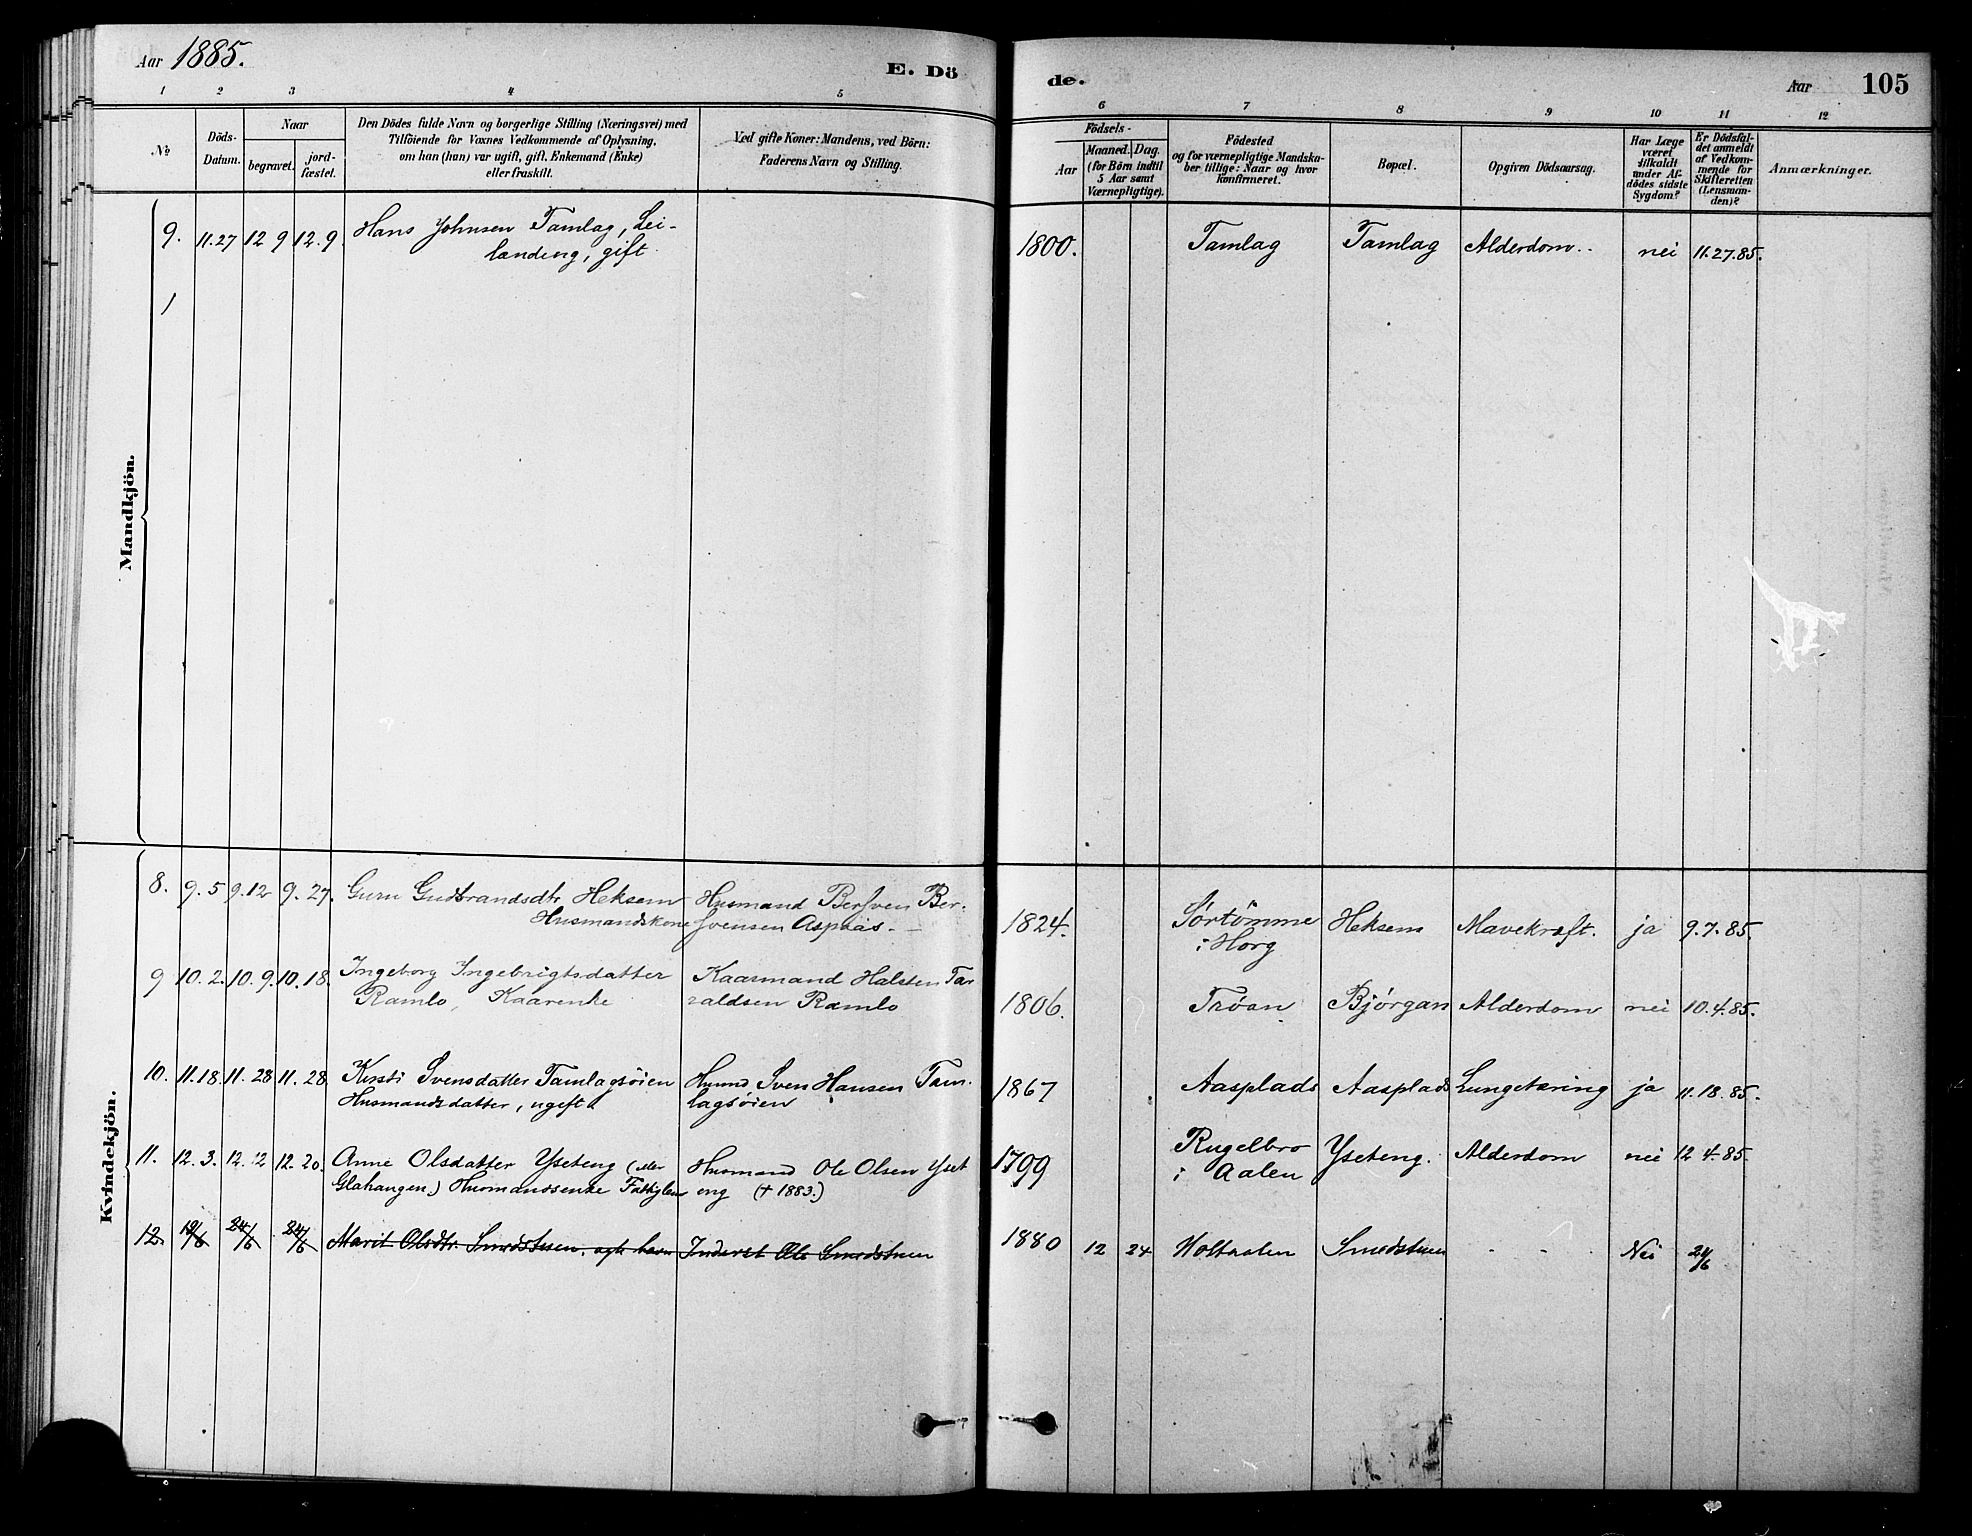 Aar 1885.
E. Dö
de.
Aar
105
1 2 3 4 5
6 7 8 9 10 11 12
№
Döds-
Datum.
Naar
begravet.
jord-
fæstet.
Den Dödes fulde Navn og borgerlige Stilling (Næringsvei) med
Tilföiende for Voxnes Vedkommende af Oplysning,
om han (hun) var ugift, gift, Enkemand (Enke)
eller fraskilt.
Ved gifte Koner: Mandens, ved Börn:
Faderens Navn og Stilling.
Födsels-
Aar
Maaned. Dag.
(for Börn indtil
5 Aar samt
Værnepligtige).
Födested
og for værnepligtige Mandska-
ber tillige: Naar og hvor
konfirmeret.
Bopæl.
Opgiven Dödsaarsag.
Har Læge
været
tilkaldt
under Af-
dödes sidste
Sygdom?
Er Dödsfal-
det anmeldt
af Vedkom-
mende for
Skifteretten
(Lensman-
den)?
Anmærkninger.
Mandkjön.
9. 11.27 12 9 12.9. Hans Johnsen Tamlag, Lei-
lænding, gift
1800. Tamlag Tamlag Alderdom.. nei 11.27.85.
Kvindekjön.
8. 9.5 9.12 9.27. Guru Gudbrandsdtr Heksem Husmand Bersven Ber-
Husmandskone svensen Aspaas.
1824. Sørtømme Heksem Mavekræft. ja 9.7.85.
i Horg
9 10.2. 10.9. 10.18. Ingeborg Ingebrigtsdatter Kaarmand Halsten Ta-
Ramlo, Kaarenke raldsen Ramlo
1806. Trøan Bjørgan Alderdom nei 10.4.85.
10. 11.18. 11.28 11.28. Kirsti Svensdatter Tamlagsøien Husmd Sven Hansen Tam-
Husmandsdatter, ugift lagsøien
1867 Aasplads Aasplads Lungetæring ja 11.18.85.
11. 12.3. 12.12 12.20. Anne Olsdatter Yseteng (eller Husmand Ole Olsen Yset
Glahaugen.) Husmandsenke Fattiglem eng († 1883.)
1799 Rugelbro Yseteng. Alderdom nei 12 4.85.
i Aalen
12. 19/6 24/6 24/6 Marit Olsdtr. Smedstuen, ægte barn Inderst Ole Smedstuen
1880 12 24 Holtaalen Smedstuen - - Nei 24/6